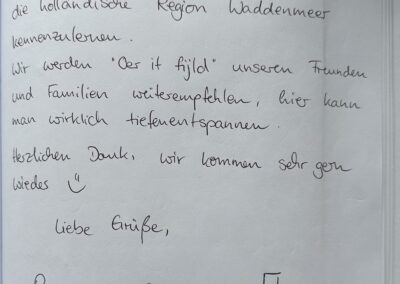 die holländische Region Waddenmeer
kennenzulernen.
Wir werden "Oer it fijld" unseren Freunden
und Familien weiterempfehlen, hier kann
man wirklich tiefenentspannen.
Herzlichen Dank, wir kommen sehr gern
wieder
Liebe Grüße,